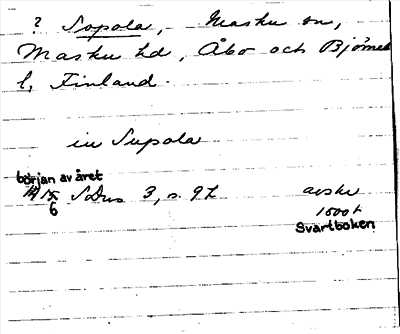 ? Sopola, Masku sn,
Masku hd, Åbo och Bjørneb
l, Finland.
in Supola
början av året
6 SDns 3, s. 92 avskr
1500t
Svartboken